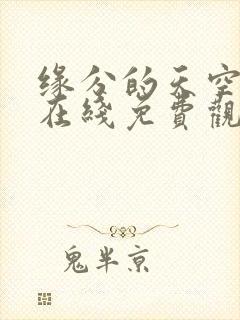 缘分的天空
在綫免費觀
鬼半京